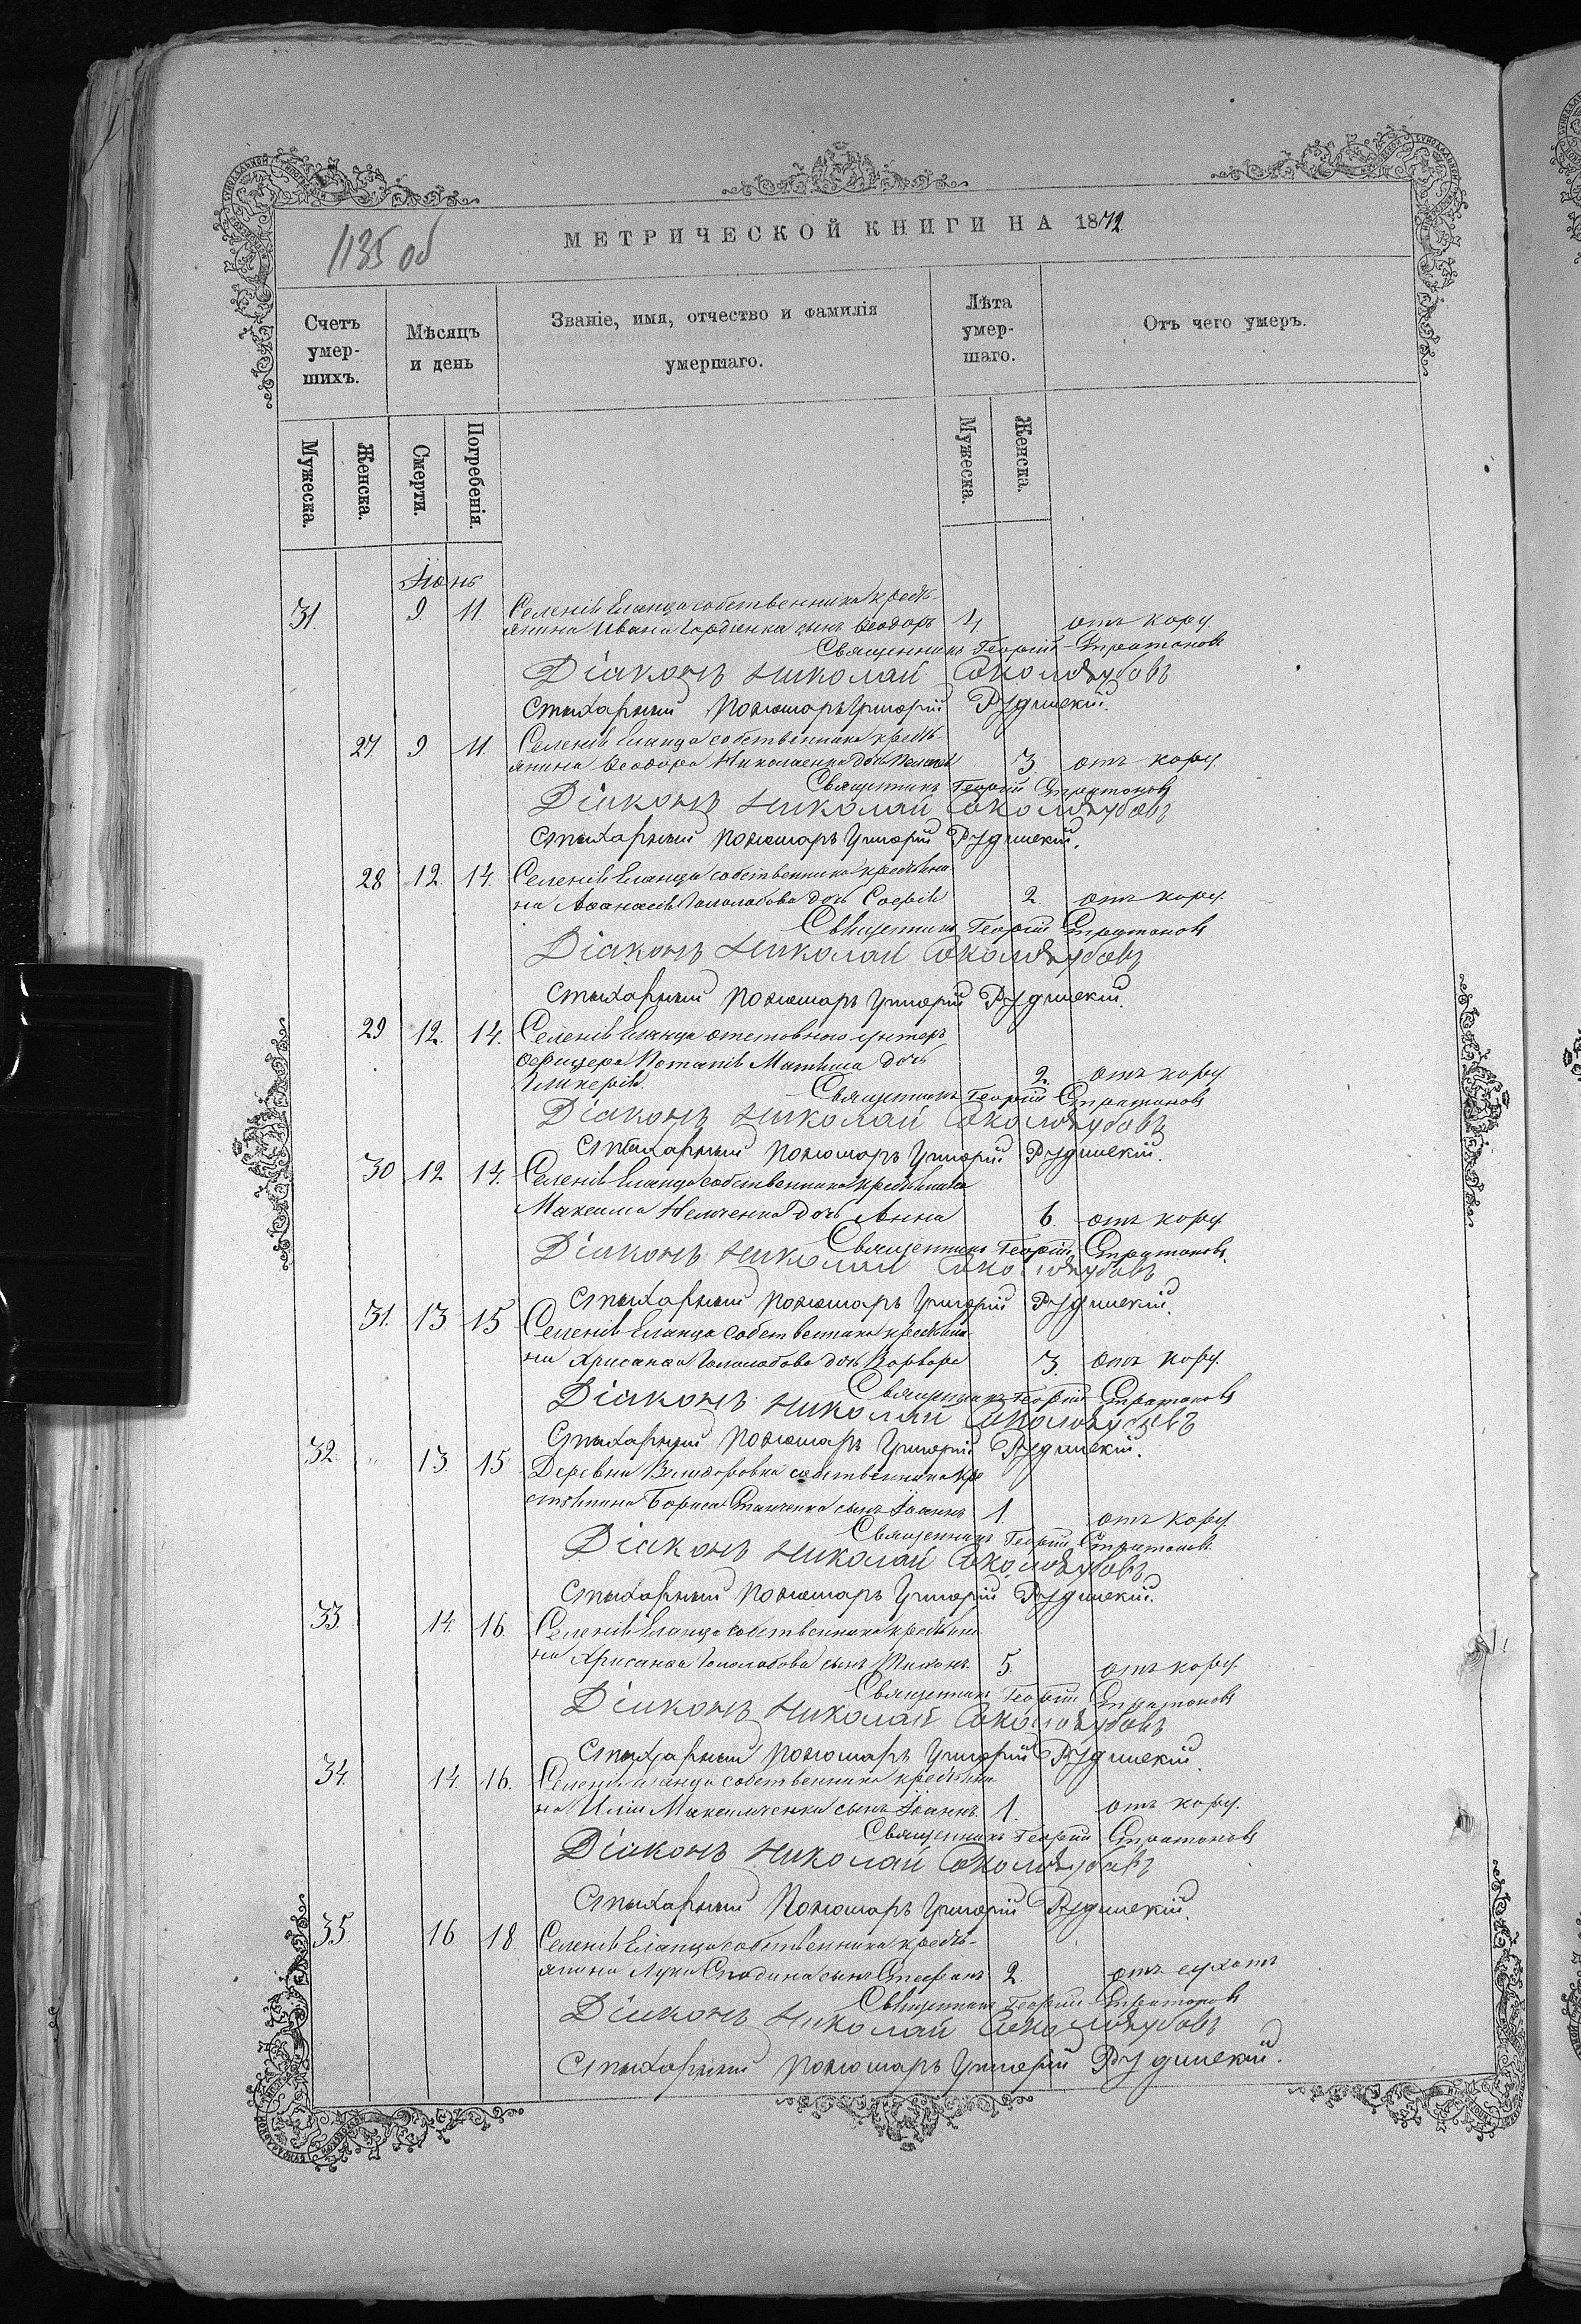 МЕТРИЧЕСКОЙ КНИГИ НА 1872
1135 об
Счетъ умер- шихъ.
Мѣсяцъ и день
Званіе, имя, отчество и фамилія умершаго.
Лѣта умер- шаго.
Отъ чего умеръ.
Мужеска. Женска. Смерти. Погребенія. Мужеска. Женска.
Іюнь
31. 9. 11. Селенія Еланца собственника кресть-
янина Ивана Гордіенка сынъ Ѳеодоръ 4. отъ кору.
Священникъ Георгій Стратоновъ
Діаконъ Николай Соколодубовъ
Стихарный Пономарь Григорій Рудинскій.
27 9 11. Селенія Еланца собственника кресть-
янина Ѳеодора Николаенка дочь 3. отъ кору.
Священникъ Георгій Стратоновъ
Діаконъ Николай Соколодубовъ
Стихарный Пономарь Григорій Рудинскій.
28 12. 14. Селенія Еланца собственника крестьяни
на Аѳанасія Гололобова дочь Софія 2. отъ кору.
Священникъ Георгій Стратоновъ
Діаконъ Николай Соколодубовъ
Стихарный Пономарь Григорій Рудинскій.
29 12. 14. Селенія Еланца отставного унтеръ
офицера Потапія дочь
Гликерія. 2. отъ кору.
Священникъ Георгій Стратоновъ
Діаконъ Николай Соколодубовъ
Стихарный Пономарь Григорій Рудинскій.
30 12 14. Селенія Еланца собственника крестьянина
Максима дочь Анна 6. отъ кору.
Священникъ Георгій Стратоновъ
Діаконъ Николай Соколодубовъ
Стихарный Пономарь Григорій Рудинскій.
31. 13. 15 Селенія Еланца собственника крестьяни
на Хрисанѳа Гололобова дочь Варвара 3. отъ кору.
Священникъ Георгій Стратоновъ
Діаконъ Николай Соколодубовъ
Стихарный Пономарь Григорій Рудинскій.
32. 13. 15 Деревни собственника кре
стьянина Бориса сынъ Іоаннъ 1. отъ кору.
Священникъ Георгій Стратоновъ
Діаконъ Николай Соколодубовъ
Стихарный Пономарь Григорій Рудинскій.
33. 14. 16. Селенія Еланца собственника крестьяни
на Хрисанѳа Гололобова сынъ 5. отъ кору.
Священникъ Георгій Стратоновъ
Діаконъ Николай Соколодубовъ
Стихарный Пономарь Григорій Рудинскій.
34. 14. 16. Селенія Еланца собственника крестьяни
на Иліи Максимченка сынъ Іоаннъ. 1. отъ кору.
Священникъ Георгій Стратоновъ
Діаконъ Николай Соколодубовъ
Стихарный Пономарь Григорій Рудинскій.
35. 16 18. Селенія Еланца собственника кресть-
янина Луки сынъ Стефанъ 2. отъ сухотъ
Священникъ Георгій Стратоновъ
Діаконъ Николай Соколодубовъ
Стихарный Пономарь Григорій Рудинскій.